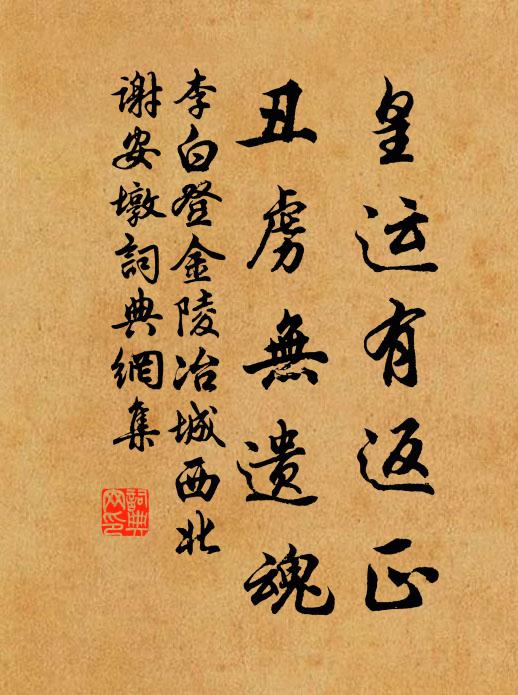 皇运有返正
丑虏無遗魂
李白登金陵冶城西北
谢安墩詞典網集
詞典网印